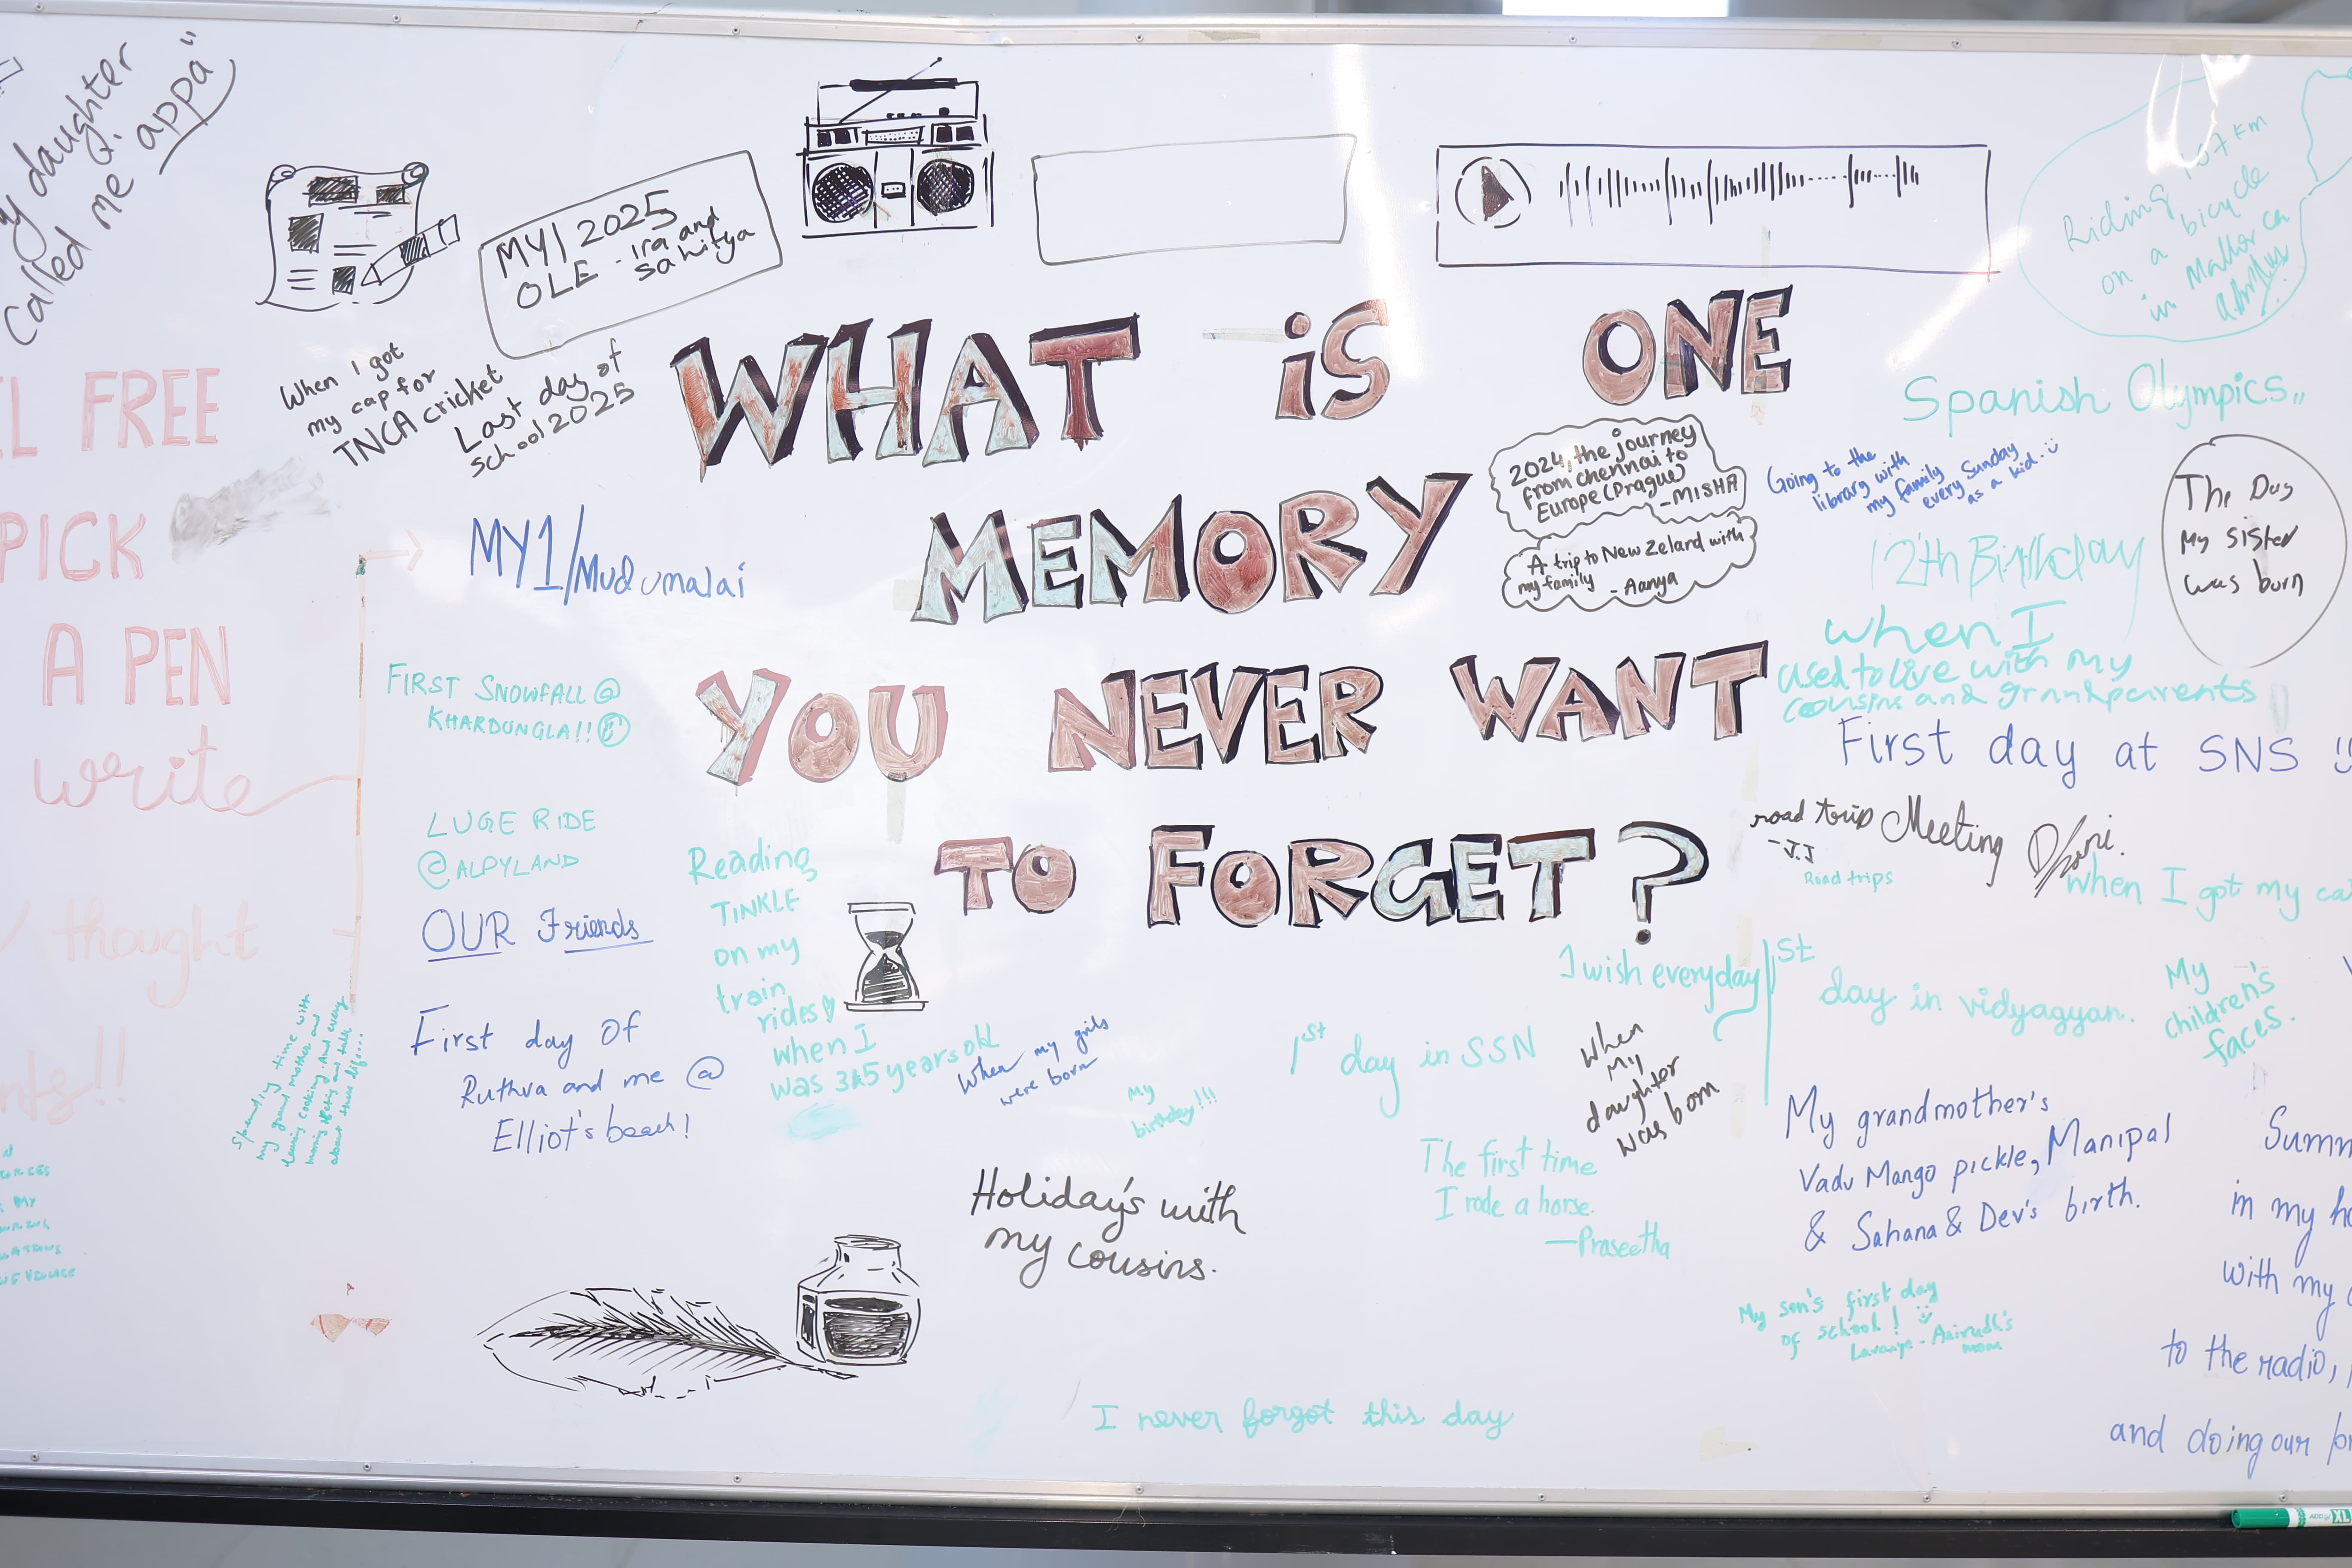 my daughter
called me
"appa"
FREE
PICK
A PEN
write
thought
MY1 2025
OLE - ira and
sahitya
When I got
my cap for
TNCA cricket
Last day of
school 2025
MY1/Mudumalai
FIRST SNOWFALL @
KHARDUNGLA!!
LUGE RIDE
@ALPYLAND
OUR Friends
First day of
Ruthva and me @
Elliot's beach!
Spending time with
my grand mother and
about
Reading
TINKLE
on my
train
rides
when I
was 3&5 years old
When my girls
were born
My
birthday!!!
WHAT iS ONE
MEMORY
YOU NEVER WANT
TO FORGET?
2024, the journey
from chennai to
Europe (Prague)
-MISHA
A trip to New Zeland with
my family - Aanya
Riding 167 km
on a bicycle
in Mallorca
Spanish Olympics
Going to the
library with
my family
every Sunday
as a kid.
12th Birthday
The Day
My sister
was born
when I
used to live with my
cousins and grandparents
First day at SNS !!
road trip
-J.J
Road trips
Meeting Dhoni.
when I got my
I wish everyday
1st
day in vidyagyan.
My
children's
faces.
1st day in SSN
When
My
daughter
was born
The first time
I rode a horse.
-Praseetha
My grandmother's
Vadu Mango pickle, Manipal
& Sahana & Dev's birth.
My son's first day
of school!
Lavanya - Anirudh's
mom
Holiday's with
my cousins.
I never forgot this day
in my
with my
to the radio,
and doing our